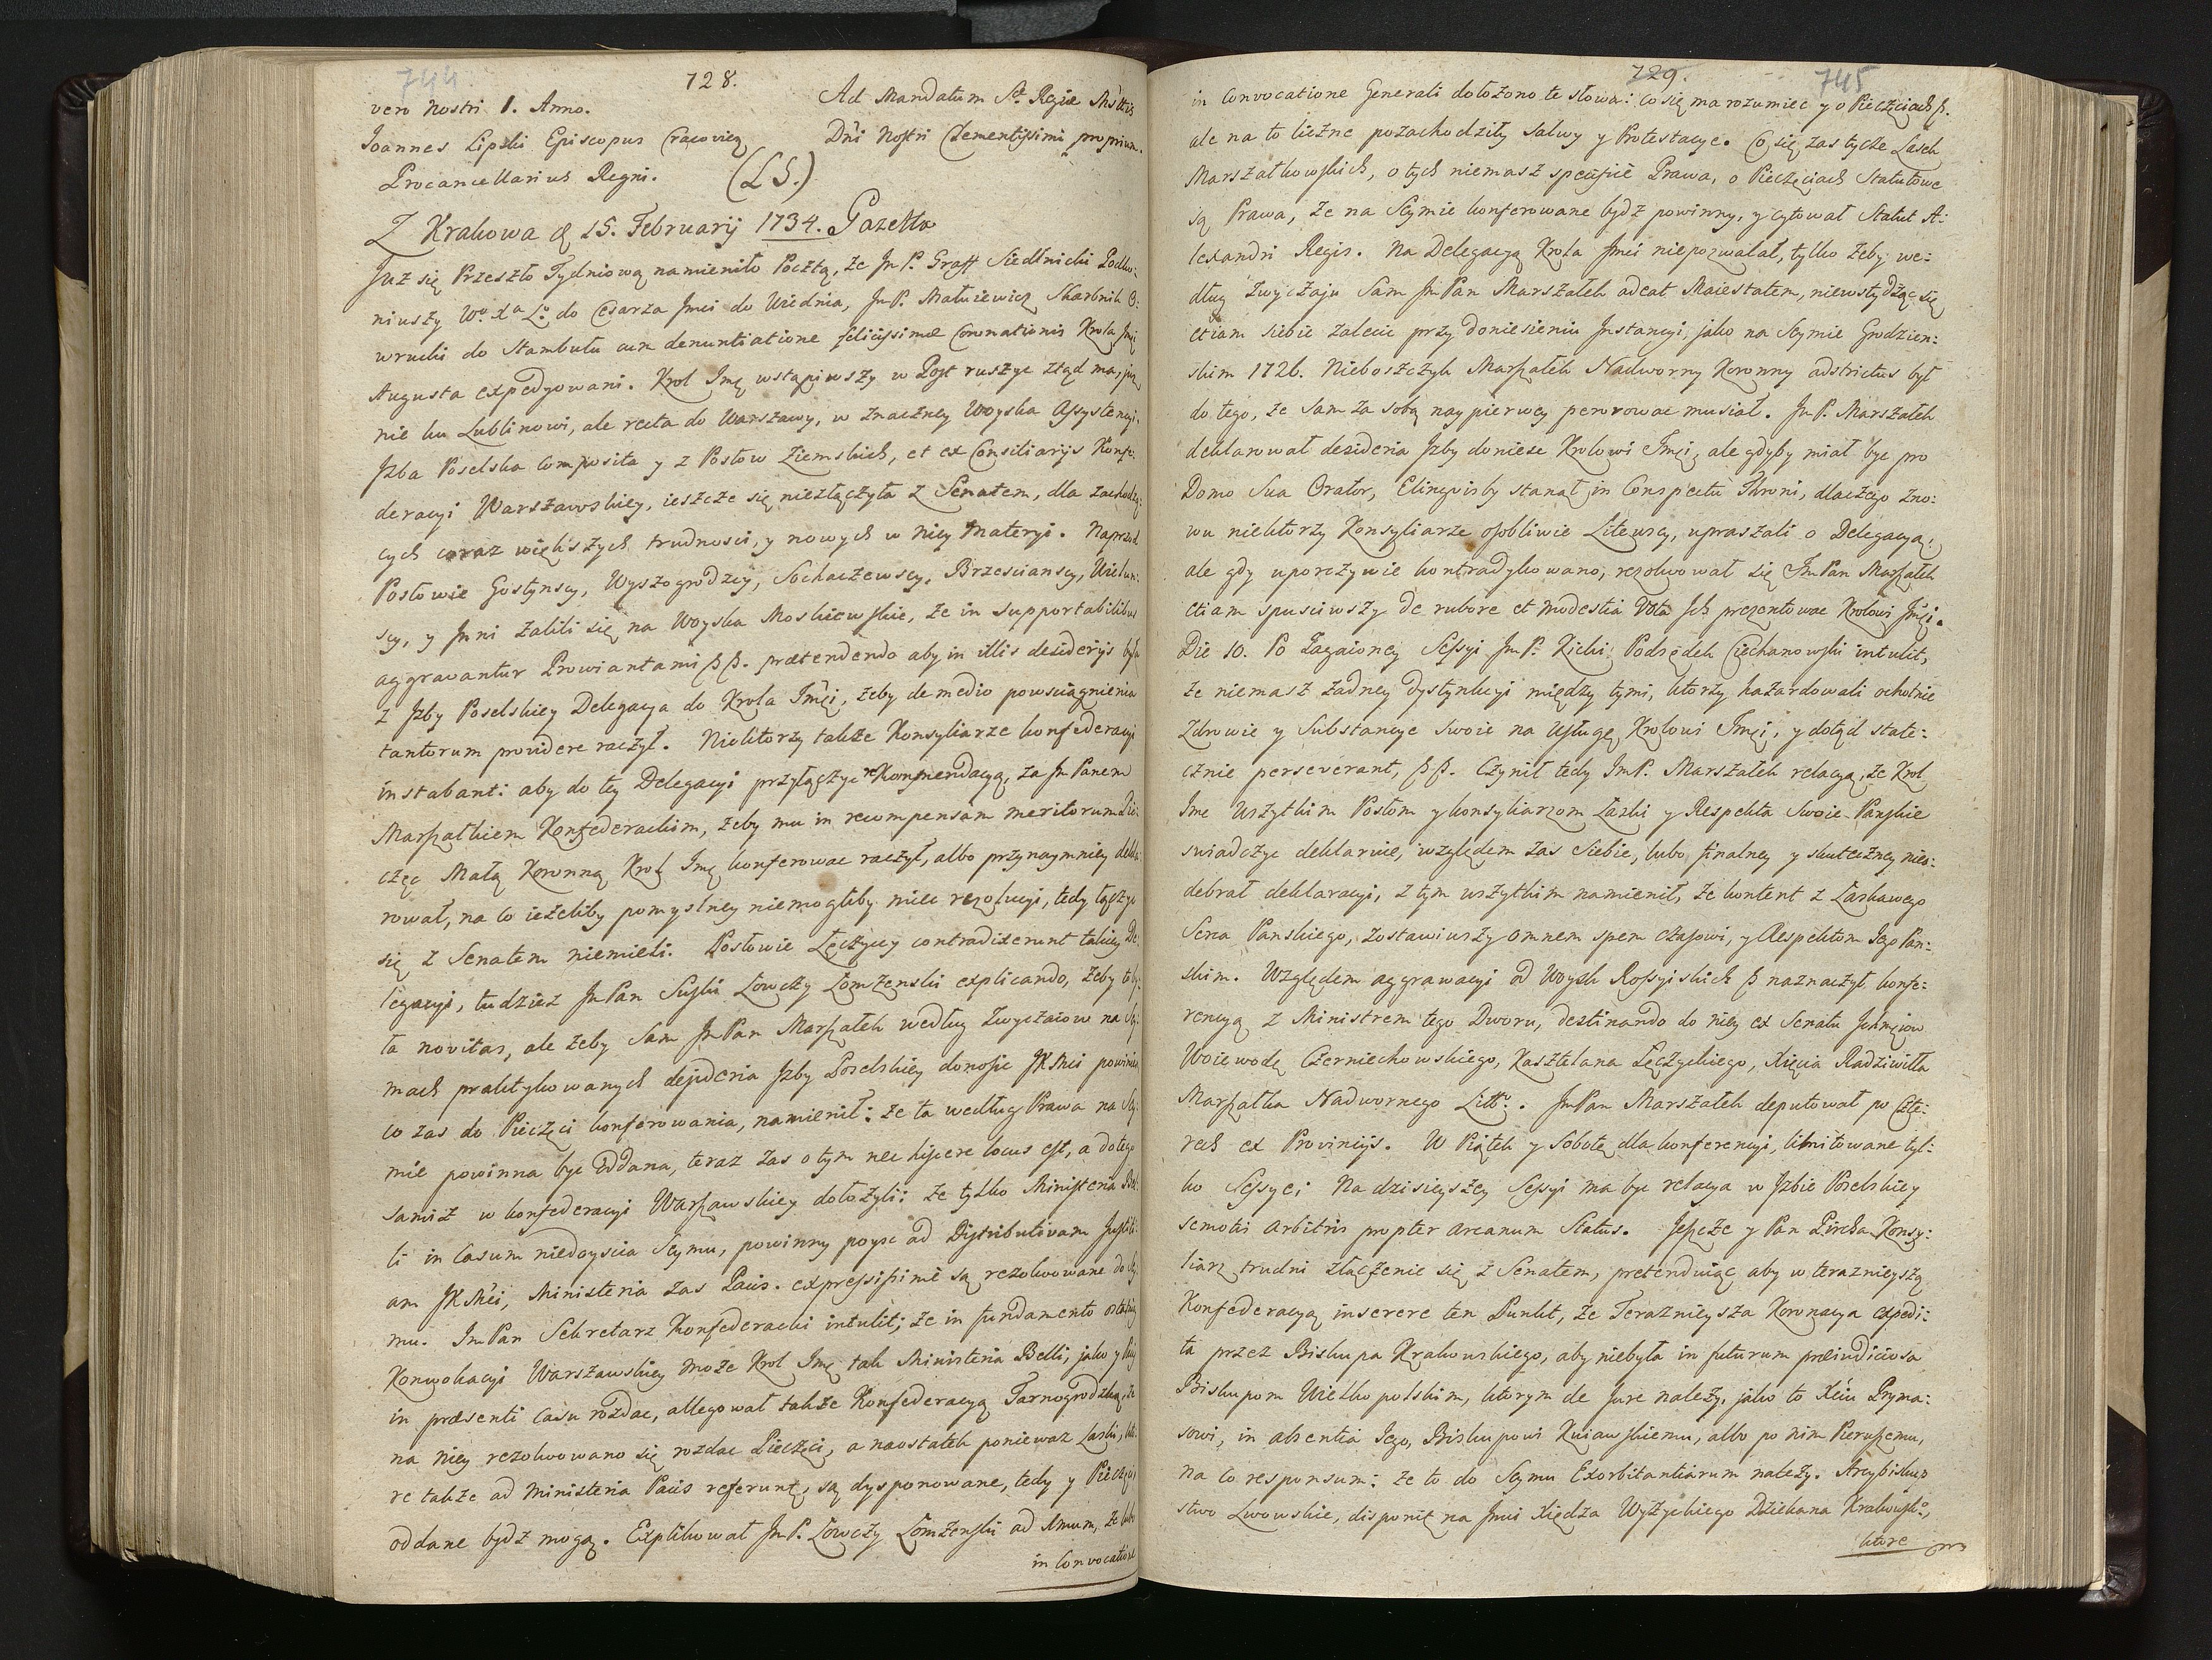 744
728.
vero Nostri 1. Anno.
Ad Mandatum Sæ Regiæ Mśttis
Joannes Lipski Episcopus Cracovien
Dńi Nostri Clementissimi proprium.
Procancellarius Regni.
(LS.)
Z Krakowa d 15. Februarij 1734. Gazetta
Już się Przeszło Tydniową namieniło Pocztą, że Jm P. Graff Siedlnicki Podko-
niuszy Wo Xa Lo do Cesarza Jmci do Wiednia, Jm P. Małuiewicz Skarbnik O-
wrucki do Stambułu cum denuntiatione felicissimæ Coronationis Krola Jmći
Augusta expedyowani. Krol Jmć wstąpiwszy w Post ruszyc ztąd ma, już
nie ku Lublinowi, ale recta do Warszawy, w znaczney Woyska Assystencyi.
Jzba Poselska Composita y z Posłow Ziemskich, et ex Consiliarijs Konfe-
deracyi Warszawskiey, ieszcze się niezłączyła z Senatem, dla zachodzą-
cych coraz większych trudnosci, y nowych w niey Materyi. Naprzod
Posłowie Gostynscy, Wyszogrodzcy, Sochaczewscy, Brzescianscy, Wielun-
scy, y Jnni żalili się na Woyska Moskiewskie, że in supportabilibus
aggravantur Prowiantami ββ. prætendendo aby in illis desiderijs była
z Jzby Poselskiey Delegacya do Krola Jmći, żeby de medio powsciągnienia
tantorum providere raczył. Niektorzy także Konsyliarze konfederacyi
instabant: aby do tey Delegacyi przyłączyc rekommendacyą, za Jm Panem
Marszałkiem Konfederackim, żeby mu in recompensam meritorum Pie-
częc Małą Koronną Krol Jmć konferowac raczył, albo przynaymniey dekla-
rował, na co ieżeliby pomyslney niemogliby miec rezolucyi, tedy łączyc
się z Senatem niemieli. Posłowie Łęczyccy contradixerunt takiey De-
legacyi, tudziesz Jm Pan Suski Łowczy Łomżenski explicando, żeby to by-
ła novitas, ale żeby Sam Jm Pan Marszałek według Zwyczaiow na Sey-
mach praktykowanych desideria Jzby Poselskiey donosic JKMci powinien
co zas do Pieczęci konferowania, namienił: że ta według Prawa na Sey-
mie powinna byc oddana, teraz zas o tym nec hiscere locus est, a do tego
samisz w konfederacyi Warszawskiey dołożyli: że tylko Ministeria Bel-
li in Casum niedoyscia Seymu, powinny poysc ad Distributivam Justiti-
am JKMći, Ministeria zas Pacis expressissimè są rezolwowane do Sey-
mu. Jm Pan Sekretarz Konfederacki intulit; że in fundamento ostatniey
Konwokacyi Warszawskiey może Krol Jmć tak Ministeria Belli, jako y Pacis
in præsenti Casu rozdac, allegował także Konfederacyą Tarnogrodzką, że
na niey rezolwowano się rozdac Pieczęci, a naostatek poniewaz Laski, kto-
re także ad Ministeria Pacis referunt, są dysponowane, tedy y Pieczęci
oddane bydz mogą. Explikował Jm P. Łowczy Łomżenski ad 1mum, że lubo
in Convocatione
729.
745
in Convocatione Generali dołożono te słowa: co się ma rozumiec y o Pieczęciach β.
ale na to liczne pozachodziły Salwy y Protestacye. Co się zas tycze Lasek
Marszałkowskich, o tych niemasz specificè Prawa, o Pieczęciach Statutowe
są Prawa, że na Seymie konferowane bydz powinny, y cytował Statut A-
lexandri Regis. Na Delegacyą Krola Jmci niepozwalał, tylko żeby we-
dług Zwyczaju Sam Jm Pan Marszałek adeat Maiestatem, niewstydząc się
etiam siebie zalecic przy doniesieniu Jnstancyi, jako na Seymie Grodzien-
skim 1726. Nieboszczyk Marszałek Nadworny Koronny adstrictus był
do tego, że Sam za sobą naypierwey perorowac musiał. Jm P. Marszałek
deklarował desideria Jzby doniesc Krolowi Jmći, ale gdyby miał byc pro
Domo Sua Orator, Elinguis by stanął in Conspectu Throni, dlaczego zno-
wu niektorzy Konsyliarze osobliwie Litewscy, upraszali o Delegacyą;
ale gdy uporczywie kontradykowano, rezolwował się Jm Pan Marszałek
etiam spusciwszy de rubore et modestia Vota Jch prezentowac Krolowi Jmći.
Die 10. Po Zagaioney Sessyi Jm P. Zicki Podsędek Ciechanowski intulit,
że niemasz żadney dystynkcyi między tymi, ktorzy hazardowali ochotnie
Zdrowie y Substancye swoie na Usługę Krolowi Jmći, y dotąd state-
cznie perseverant, ββ. Czynił tedy Jm P. Marszałek relacyą, że Krol
Jmc Wszytkim Posłom y konsyliarzom Łaski y Respekta Swoie Panskie
swiadczyc deklaruie, względem zas Siebie, lubo finalney y skuteczney nieo-
debrał deklaracyi, z tym wszytkim namienił, że kontent z Łaskawego
Serca Panskiego, zostawiwszy omnem spem czasowi, y Respektom Jego Pan-
skim. Względem aggrawacyi od Woysk Rossyiskich β naznaczył konfe-
rencyą z Ministrem tego Dworu, destinando do niey ex Senatu Jchmciow
Woiewodę Czerniechowskiego, Kasztelana Łęczyckiego, Xięcia Radziwiłła
Marszałka Nadwornego Litto. Jm Pan Marszałek deputował po czte-
rech ex Provincijs. W Piątek y Sobotę dla konferencyi, limitowane tyl-
ko Sessye; Na dzisieyszey Sessyi ma byc relacya w Jzbie Poselskiey
semotis arbitris propter arcanum Status. Jeszcze y Pan Pircha Konsy-
liarz trudni złączenie się z Senatem, pretenduiąc aby w teraznieyszą
Konfederacyą inserere ten Punkt, że Teraznieysza Koronacya expedi-
ta przez Biskupa Krakowskiego, aby niebyła in futurum præiudiciosa
Biskupom Wielkopolskim, ktorym de Jure należy, jako to Xćiu Pryma-
sowi, in absentia Jego, Biskupowi Kuiawskiemu, albo po nim Pierwszemu,
na co responsum: że to do Seymu Exorbitantiarum należy. Arcybiskup-
stwo Lwowskie, disponit na Jmci Xiędza Wyżyckiego Dziekana Krakowsko,
ktore